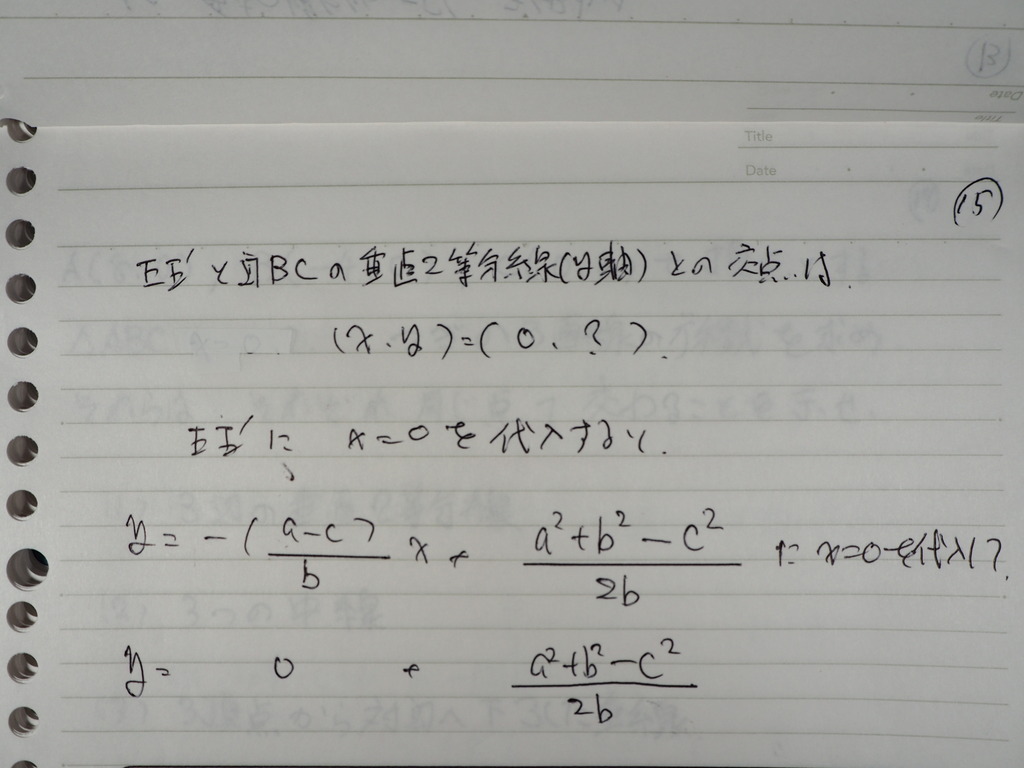 Title
Date
⑮
EE'と辺BCの垂直2等分線(y軸)との交点は、
(x、y)=(0、?)、
EE'に x=0を代入すると、
y = -(a-c)/b x + (a²+b²-c²)/2b に x=0を代入して
y = 0 + (a²+b²-c²)/2b